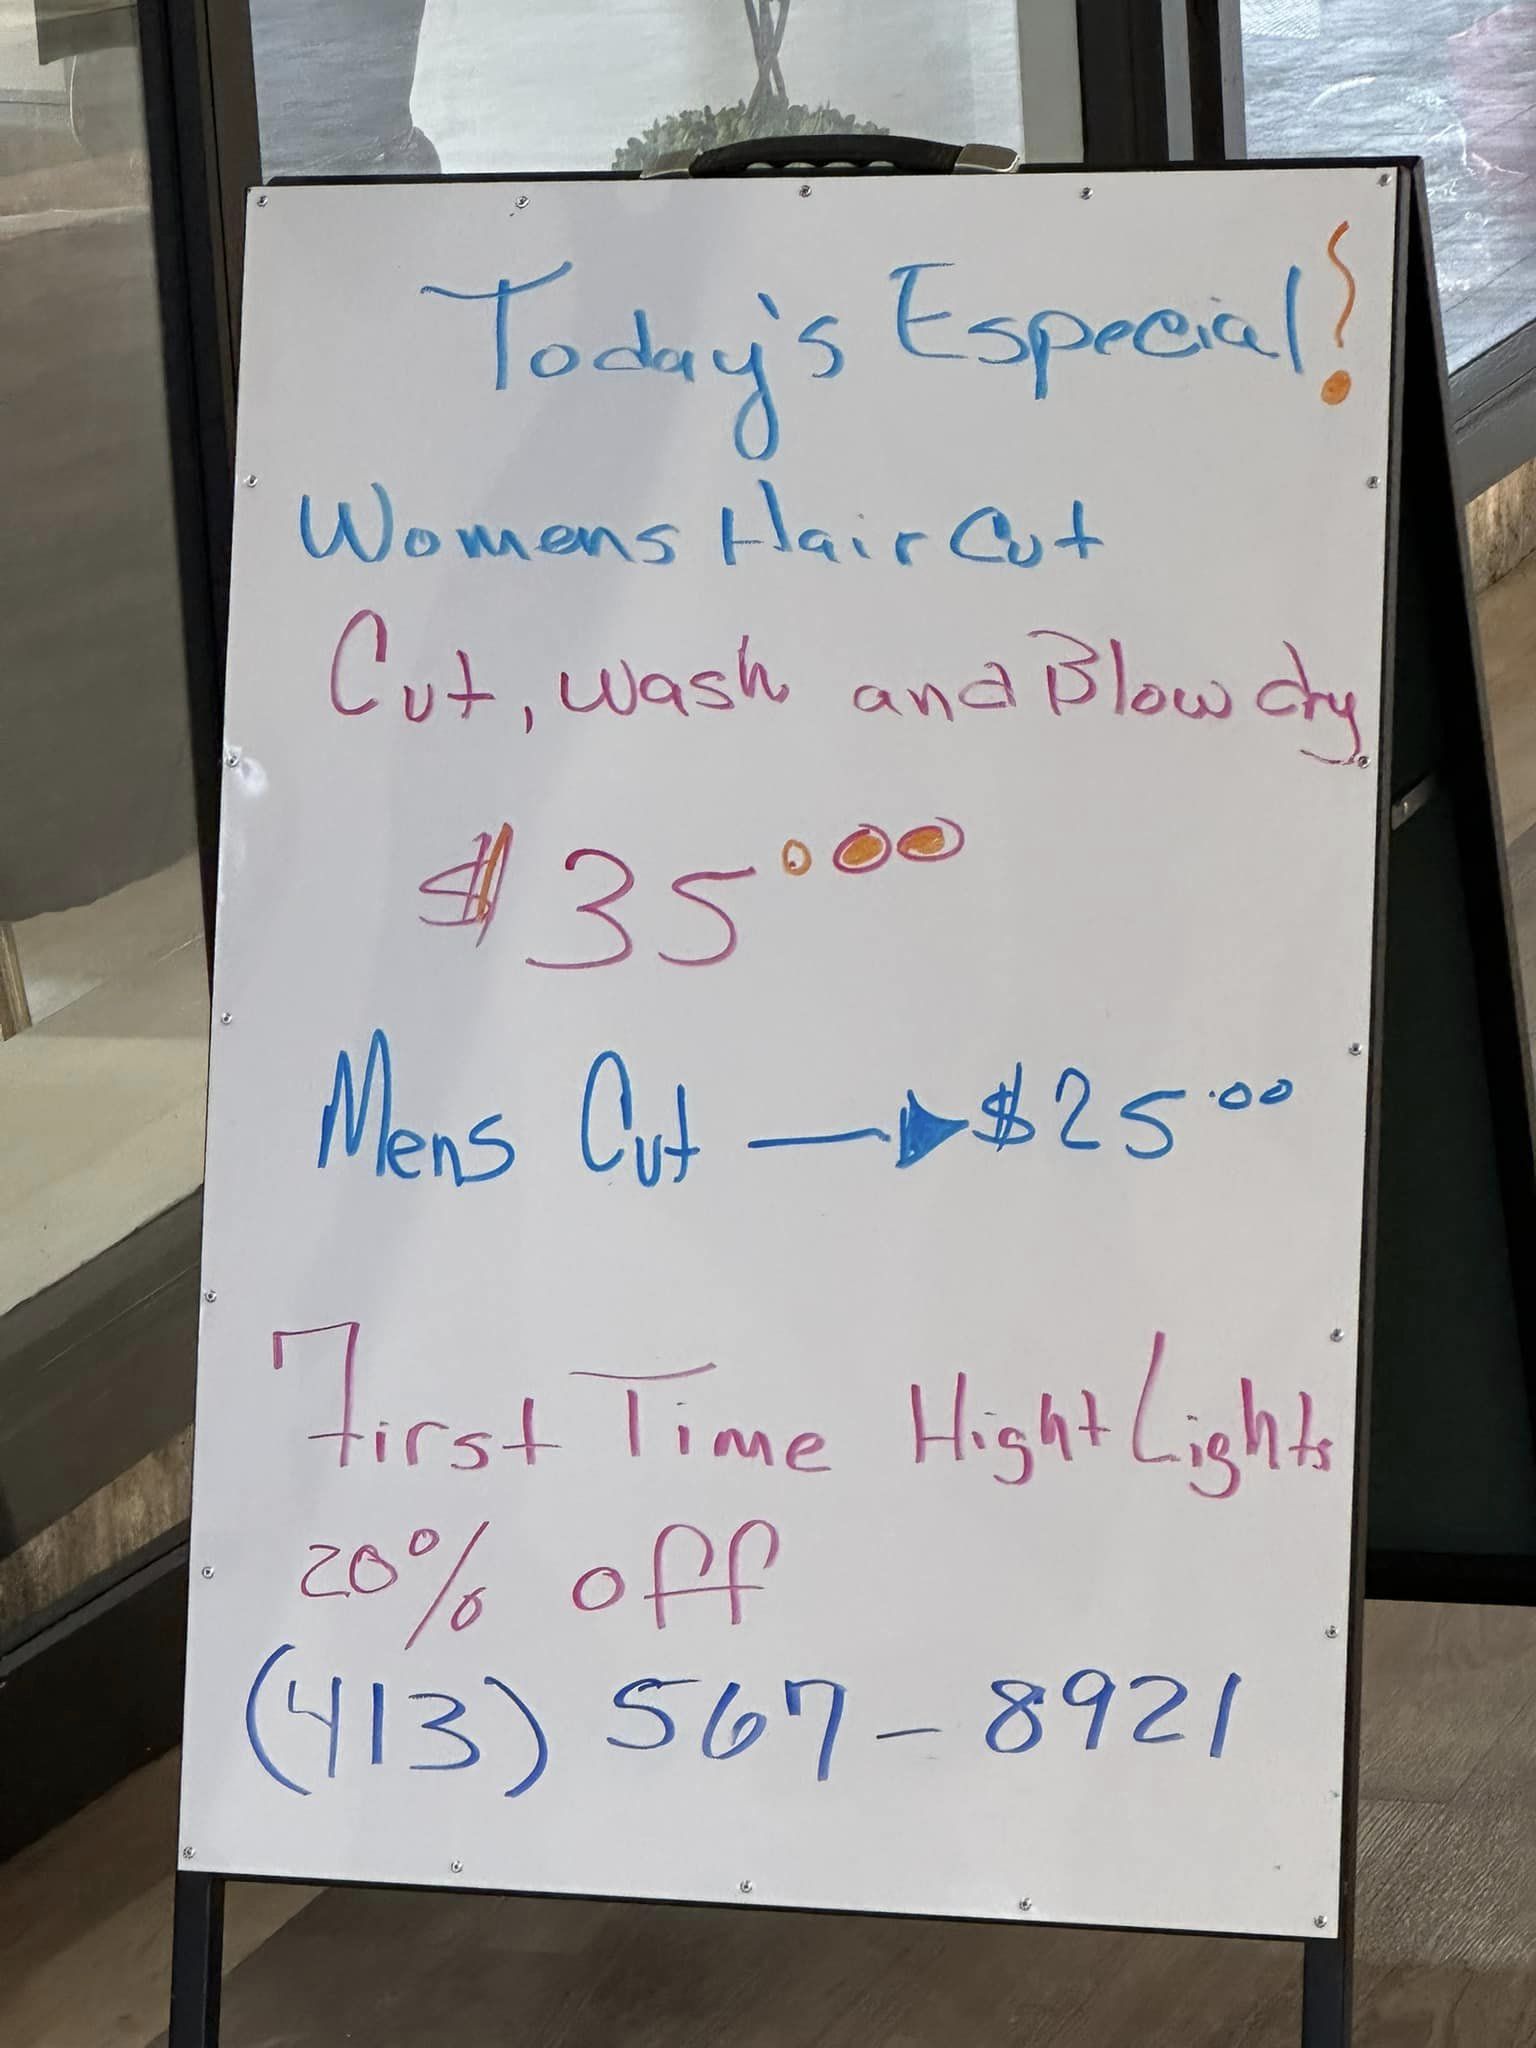 Today's Especial!
Womens Hair Cut
Cut, wash and Blow dry
$35.00
Mens Cut → $25.00
First Time HightLights
20% off
(413) 567-8921